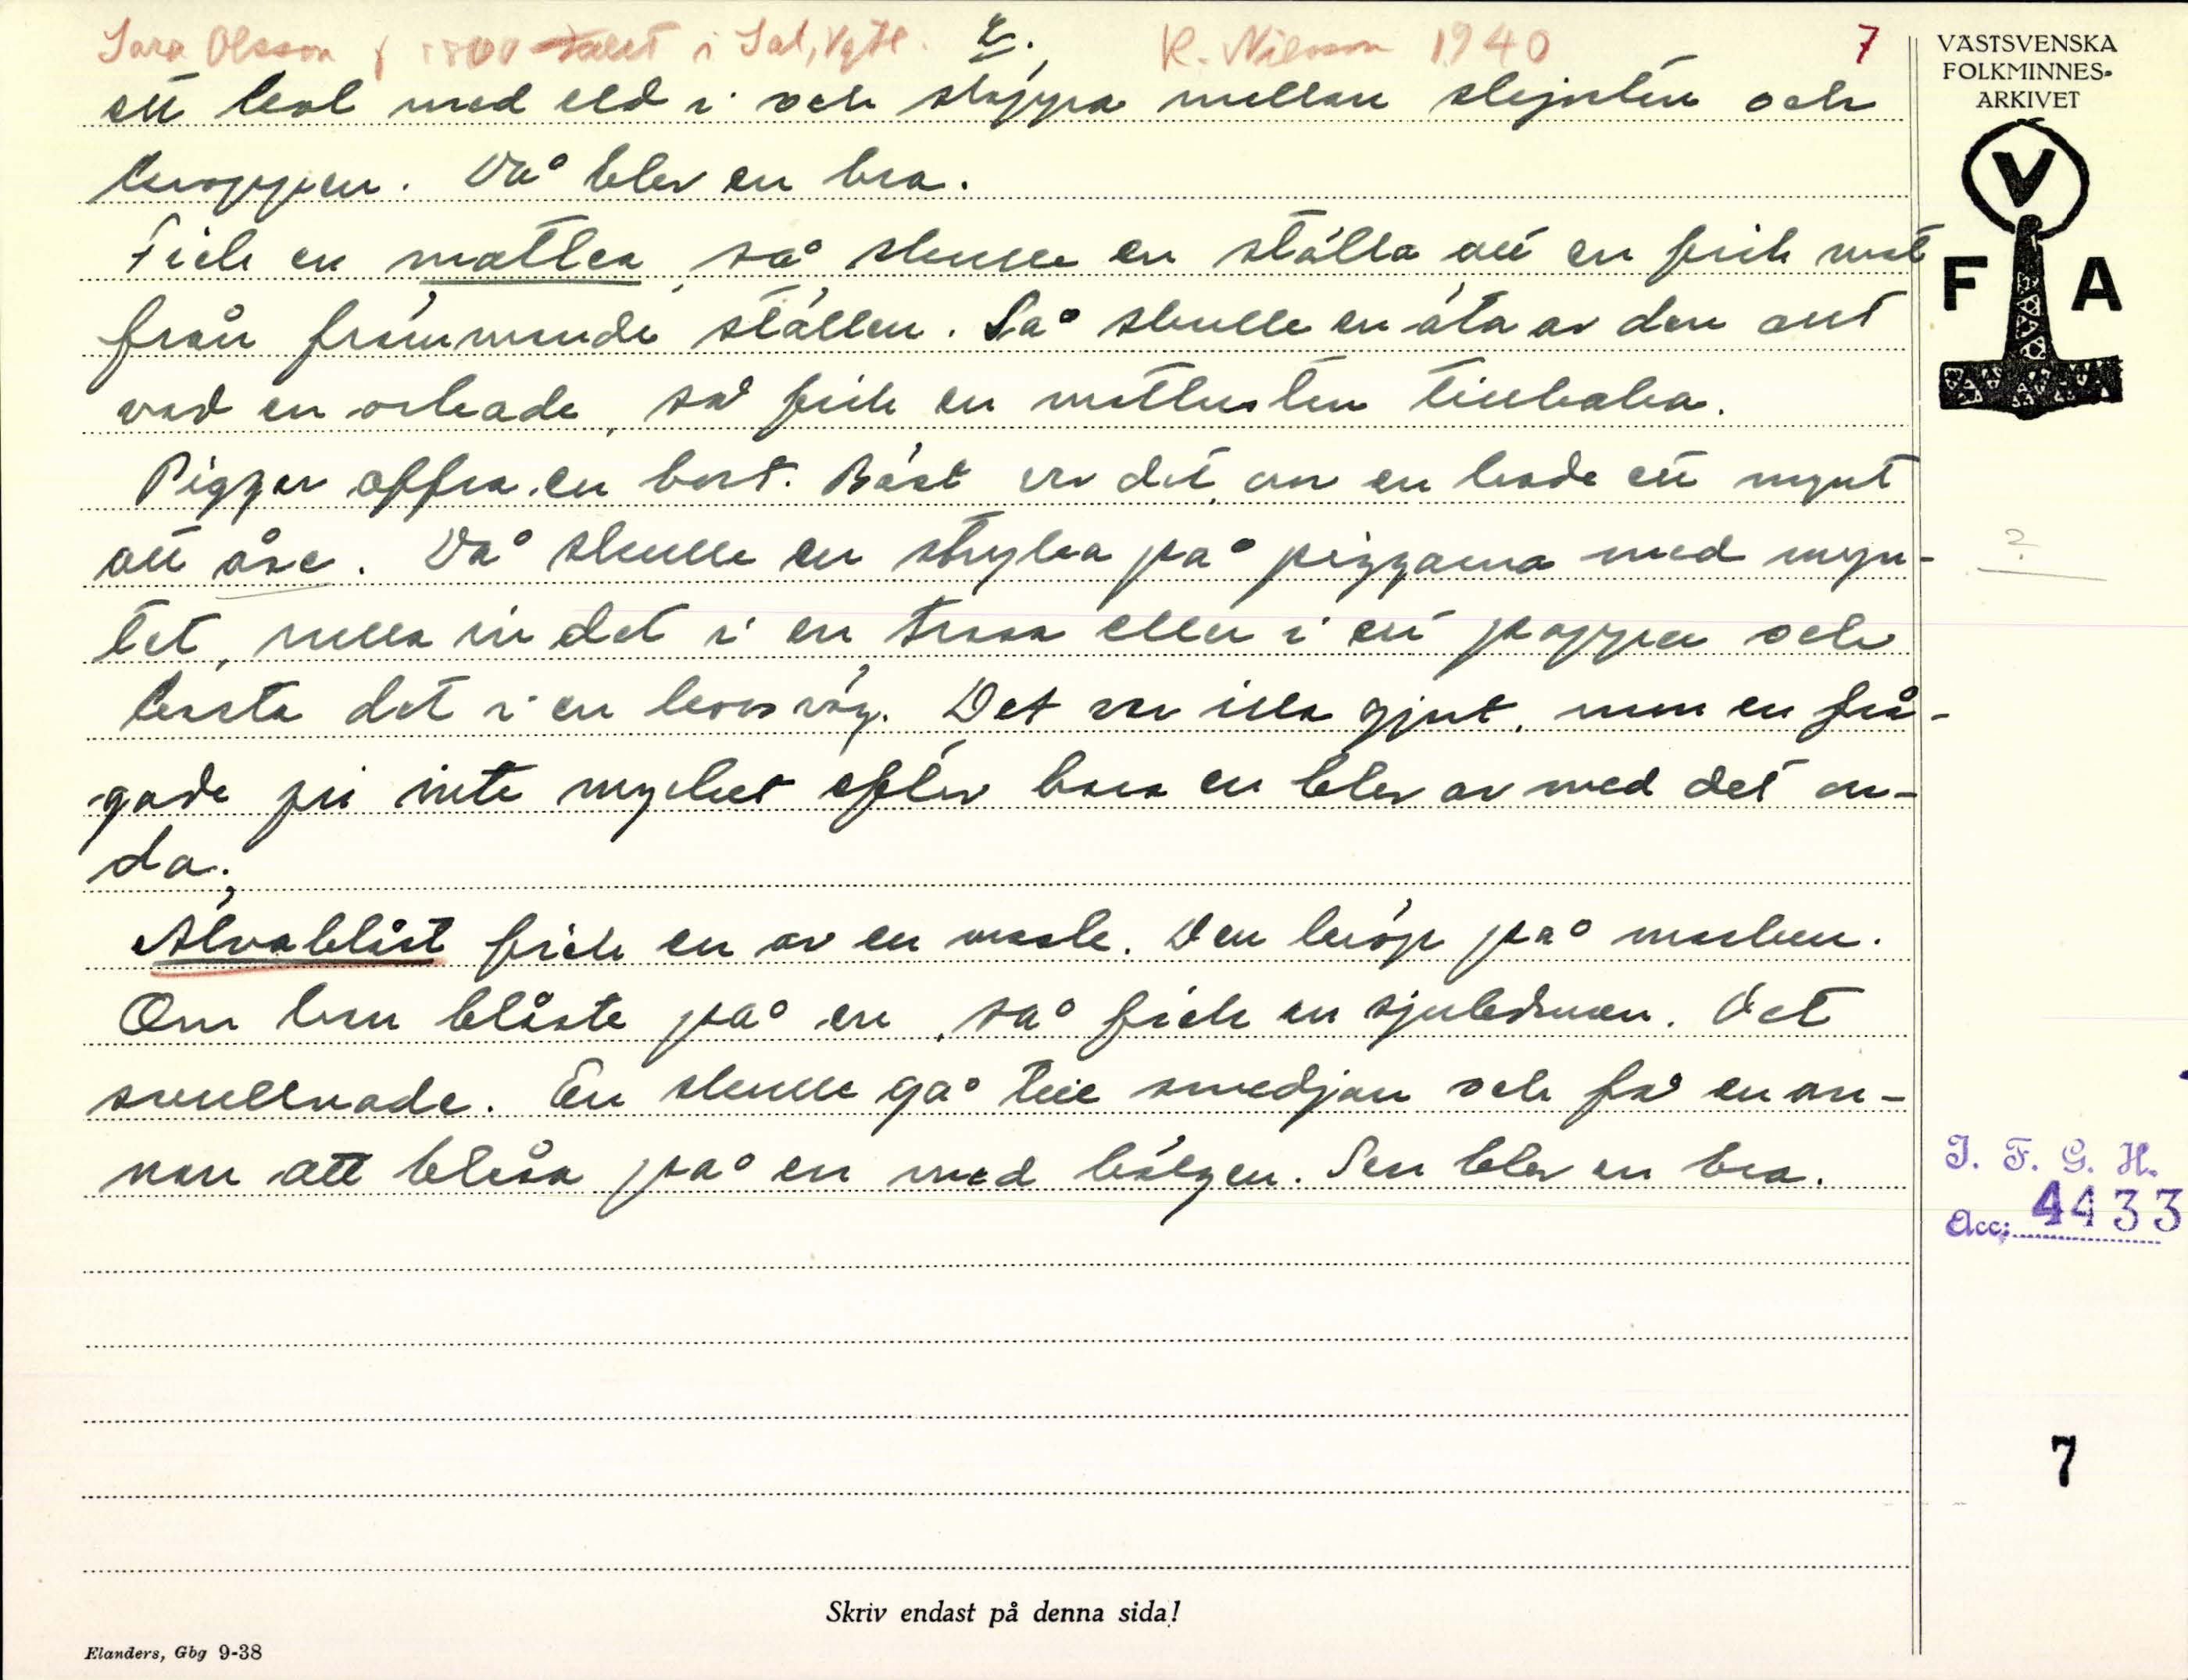 Sara Olsson f 1800 talet i Sal, Vgtl. 2. K. Nilsson 1940 7
ett kol med eld i och släppa mellan skjortan och
kroppen. Då blev en bra.
Fick en matlea, så skulle en ställa att en fick mat
från främmande ställen. Så skulle en äta av den allt
vad en orkade, så fick en matlusten tillbaka.
Piggar offra en bort. Bäst var det om en hade ett mynt
att åse. Då skulle en stryka på piggarna med myn-
tet, rulla in det i en trasa eller i ett papper och
kasta det i en korsväg. Det var illa gjort, men en frå-
gade just inte mycket efter bara en blev av med det on-
da.
Älvablåst fick en av en mask. Den kröp på marken.
Om han blåste på en, så fick en sjukdomen. Det
svullnade. En skulle gå till smedjan och få en an-
nan att blåsa på en med bälgen. Sen blev en bra.
VÄSTSVENSKA
FOLKMINNES-
ARKIVET
V
F A
?
I. F. G. H.
Acc: 4433
7
Skriv endast på denna sida!
Elanders, Gbg 9-38